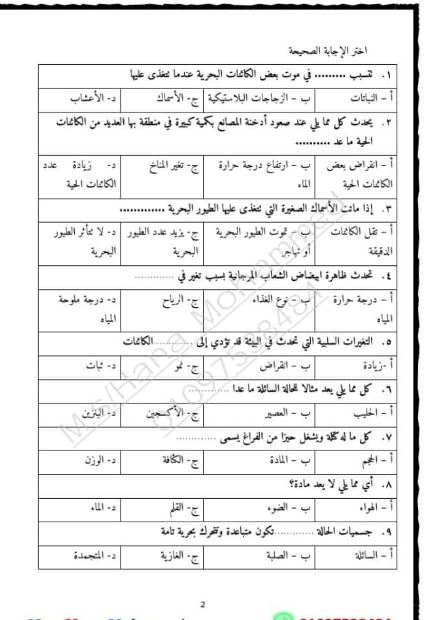 اختر الإجابة الصحيحة
١. تتسبب ......... في موت بعض الكائنات البحرية عندما تتغذى عليها
أ – النباتات ب – الزجاجات البلاستيكية ج- الأسماك د- الأعشاب
٢. يحدث كل مما يلي عند صعود أدخنة المصانع بكمية كبيرة في منطقة بها العديد من الكائنات
الحية ما عد ..........
أ – انقراض بعض ب – ارتفاع درجة حرارة ج- تغير المناخ د- زيادة عدد
الكائنات الحية الماء الكائنات الحية
٣. إذا ماتت الأسماك الصغيرة التي تتغذى عليها الطيور البحرية .............
أ – تقل الكائنات ب – تموت الطيور البحرية ج- يزيد عدد الطيور د- لا تتأثر الطيور
الدقيقة أو تهاجر البحرية البحرية
٤. تحدث ظاهرة ابيضاض الشعاب المرجانية بسبب تغير في .............
أ – درجة حرارة ب – نوع الغذاء ج- الرياح د- درجة ملوحة
المياه المياه
٥. التغيرات السلبية التي تحدث في البيئة قد تؤدي إلى .............الكائنات
أ -زيادة ب – انقراض ج- نمو د- ثبات
٦. كل مما يلي يعد مثالا للحالة السائلة ما عدا .............
أ – الحليب ب – العصير ج- الأكسجين د- البنزين
٧. كل ما له كتلة ويشغل حيزا من الفراغ يسمى .............
أ – الحجم ب – المادة ج- الكثافة د- الوزن
٨. أي مما يلي لا يعد مادة؟
أ – الهواء ب – الضوء ج- القلم د- الماء
٩. جسيمات الحالة .............تكون متباعدة وتتحرك بحرية تامة
أ – السائلة ب – الصلبة ج- الغازية د- المتجمدة
Mrs/Hana Mohammed
01097538484
2